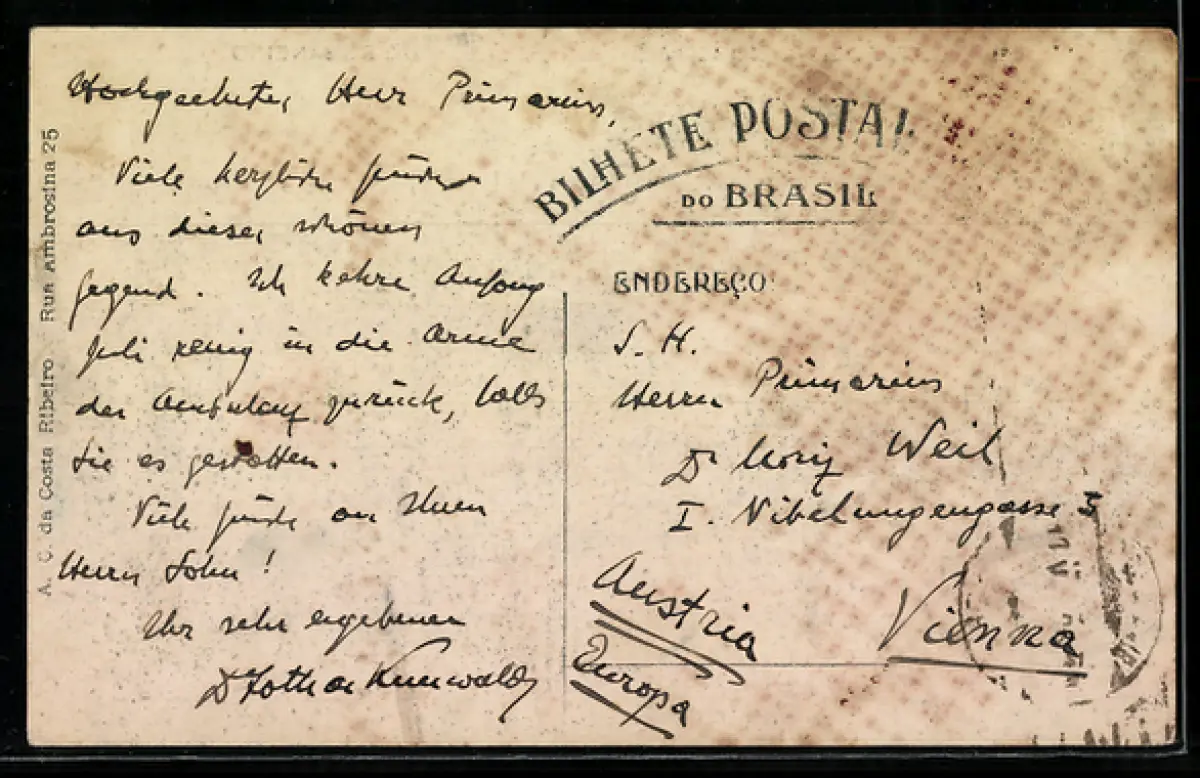 Hochgeehrter Herr Primarius,
Viele herzliche Grüße
aus dieser schönen
Gegend. Ich kehre Anfang
Juli reuig in die Arme
der Ambulanz zurück, falls
Sie es gestatten.
Viele Grüße an Ihren
Herrn Sohn!
Ihr sehr ergebener
Dr Lothar Kunwald
A. C. da Costa Ribeiro Rua Ambrosina 25
BILHETE POSTAL
DO BRASIL
ENDEREÇO
S. H.
Herrn Primarius
Dr Moriz Weil
I. Nibelungengasse 3
Austria
Vienna
Europa